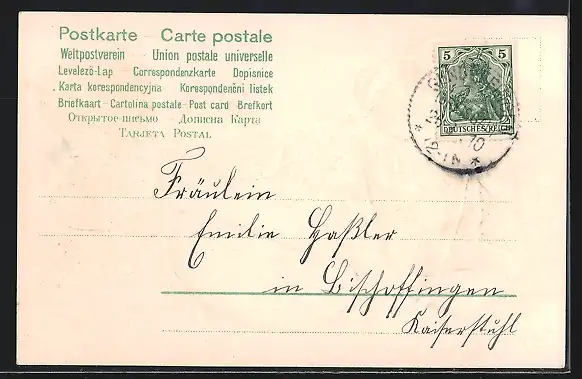 Postkarte Carte postale
Weltpostverein Union postale universelle
Levelező-Lap Correspondenzkarte Dopisnice
Karta korespondencyjna Korespondenční lístek
Briefkaart - Cartolina postale - Post card Brefkort
Открытое письмо Дописна Карта
Tarjeta Postal
5 5
DEUTSCHES REICH
12-1N
Fräulein
Emilie Haßler
in Bischoffingen
Kaiserstuhl